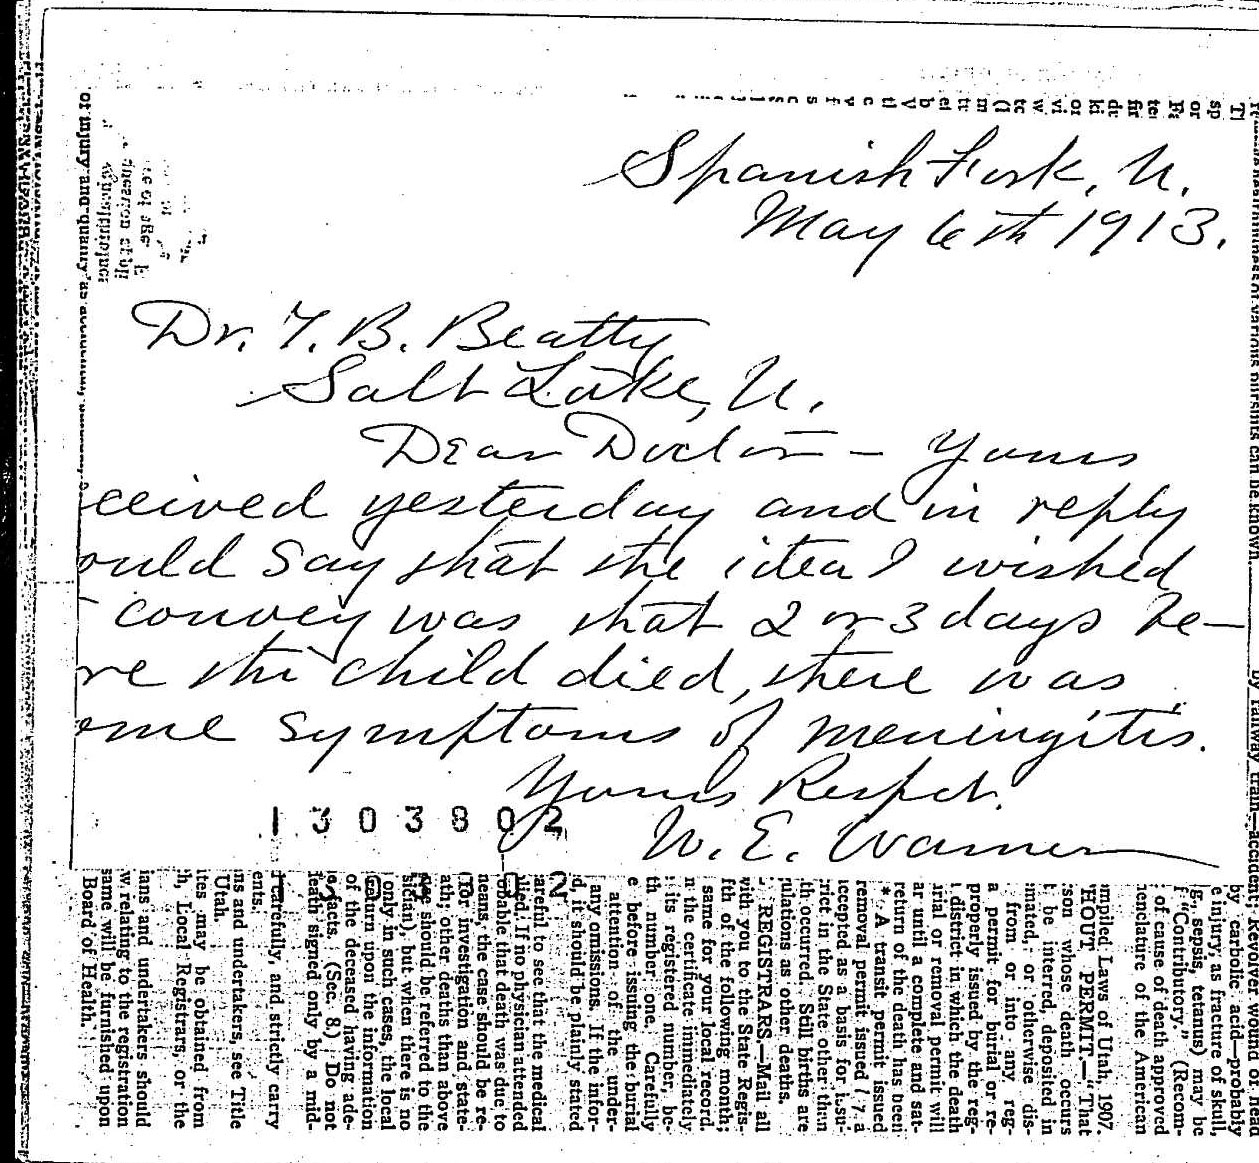 Spanish Fork, U.
May 6th 1913.
Dr. T. B. Beatty
Salt Lake, U.
Dear Doctor — Yours
ceived yesterday and in reply
ould say that the idea I wished
convey was that 2 or 3 days be-
re the child died, there was
ome symptoms of meningitis.
Yours Respct.
W. E. Warner
1303802
or injury and quality as
by carbolic acid—probably
e injury, as fracture of skull,
g., sepsis, tetanus) may be
f "Contributory." (Recom-
of cause of death approved
nenclature of the American
mpiled Laws of Utah, 1907.
HOUT PERMIT.—"That
rson whose death occurs
t be interred, deposited in
mated, or otherwise dis-
from or into any reg-
a permit for burial or re-
properly issued by the reg-
district in which the death
rial or removal permit will
ar until a complete and sat-
return of the death has been
* A transit permit issued
removal permit issued (7, a
accepted as a basis for issu-
rict in the State other than
th occurred. Still births are
ulations as other deaths.
REGISTRARS.—Mail all
with you to the State Regis-
fth of the following month;
same for your local record.
n the certificate immediately
its registered number, be-
th number one. Carefully
e before issuing the burial
attention of the under-
any omissions. If the infor-
d, it should be plainly stated
careful to see that the medical
lied. If no physician attended
obable that death was due to
neans, the case should be re-
(To investigation and state-
ath; other deaths than above
should be referred to the
sician), but when there is no
only in such cases, the local
return upon the information
of the deceased having ade-
facts. (Sec. 8.) Do not
death signed only by a mid-
carefully, and strictly carry
ents.
ns and undertakers, see Title
Utah.
ites may be obtained from
h, Local Registrars, or the
ians and undertakers should
w relating to the registration
same will be furnished upon
Board of Health.